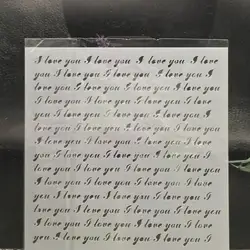 I love you I love you I love you I love
you I love you I love you I love you I
love you I love you I love you I love you
I love you I love you I love you I love
you I love you I love you I love you I
love you I love you I love you I love you
I love you I love you I love you I love
you I love you I love you I love you I
love you I love you I love you I love you
I love you I love you I love you I love
you I love you I love you I love you I
love you I love you I love you I love you
I love you I love you I love you I love